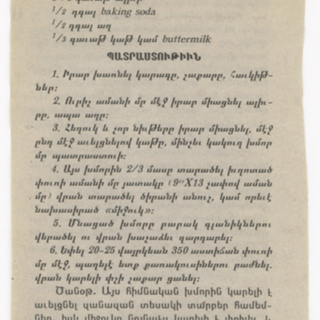 1/2 դգալ baking soda
1/2 դգալ աղ
1/3 գաւաթ կաթ կամ buttermilk
ՊԱՏՐԱՍՏՈՒԹԻՒՆ
1. Իրար խառնել կարագը, շաքարը, հաւկիթ-
ները:
2. Ուրիշ ամանի մը մէջ իրար միացնել ալիւ-
րը, ապա աղը:
3. Հեղուկ և չոր նիւթերը իրար միացնել, մէջ
ընդ մէջ աւելցնելով կաթը, մինչև կակուղ խմոր
մը պատրաստուի:
4. Այս խմորին 2/3 մասը տարածել իւղոտած
փուռի ամանի մը յատակը (9"X13 չափով աման
մը) վրան տարածել ծիրանի անուշ, կամ որևէ
նախասիրած «միջուկ»:
5. Մնացած խմորը բարակ գլանիկներու
վերածել ու վրան խաչաձև զարդարել:
6. Եփել 20-25 վայրկեան 350 աստիճան փուռի
մը մէջ, պաղելէ ետք քառակուսիներու բաժնել,
վրան կարելի է փոշի շաքար ցանել:
Ծանօթ. Այս հիմնական խմորին կարելի է
աւելցնել զանազան տեսակի